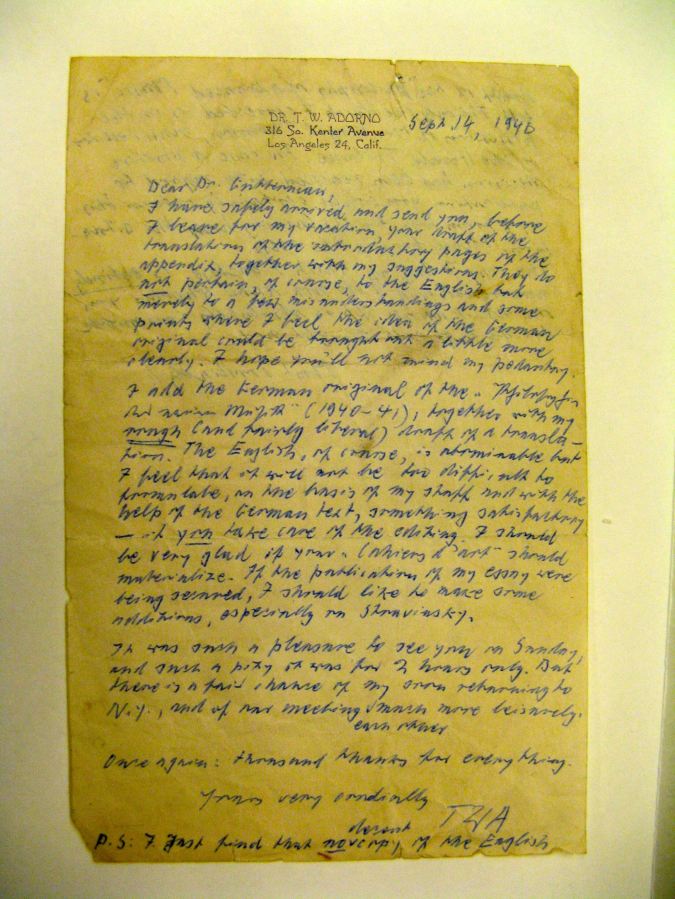 DR. T. W. ADORNO
316 So. Kenter Avenue
Los Angeles 24, Calif.
Sept. 14, 1946
Dear Dr.
I have safely arrived and send you, before
I leave for my vacation, your draft of the
translation of the introductory pages of the
appendix, together with my suggestions. They do
not pertain, of course, to the English but
merely to a few misunderstandings and some
points where I feel the idea of the German
original could be brought out a little more
clearly. I hope you'll not mind my pedantry.
I add the German original of the
der neuen Musik" (1940-41), together with my
rough (and fairly liberal) draft of a transla-
tion. The English, of course, is abominable but
I feel that it will not be too difficult to
formulate, on the basis of my stuff and with the
help of the German text, something satisfactory
— if you take care of the editing. I should
be very glad if your "Cahiers d'art" should
materialize. If the publication of my essay were
being secured, I should like to make some
additions, especially on Stravinsky.
It was such a pleasure to see you on Sunday,
and such a pity it was for 2 hours only. But
there is a fair chance of my soon returning to
N.Y., and of our meeting much more leisurely.
each other
Once again: thousand thanks for everything.
Yours very cordially
TWA
decent
P.S: I just find that no copy of the English